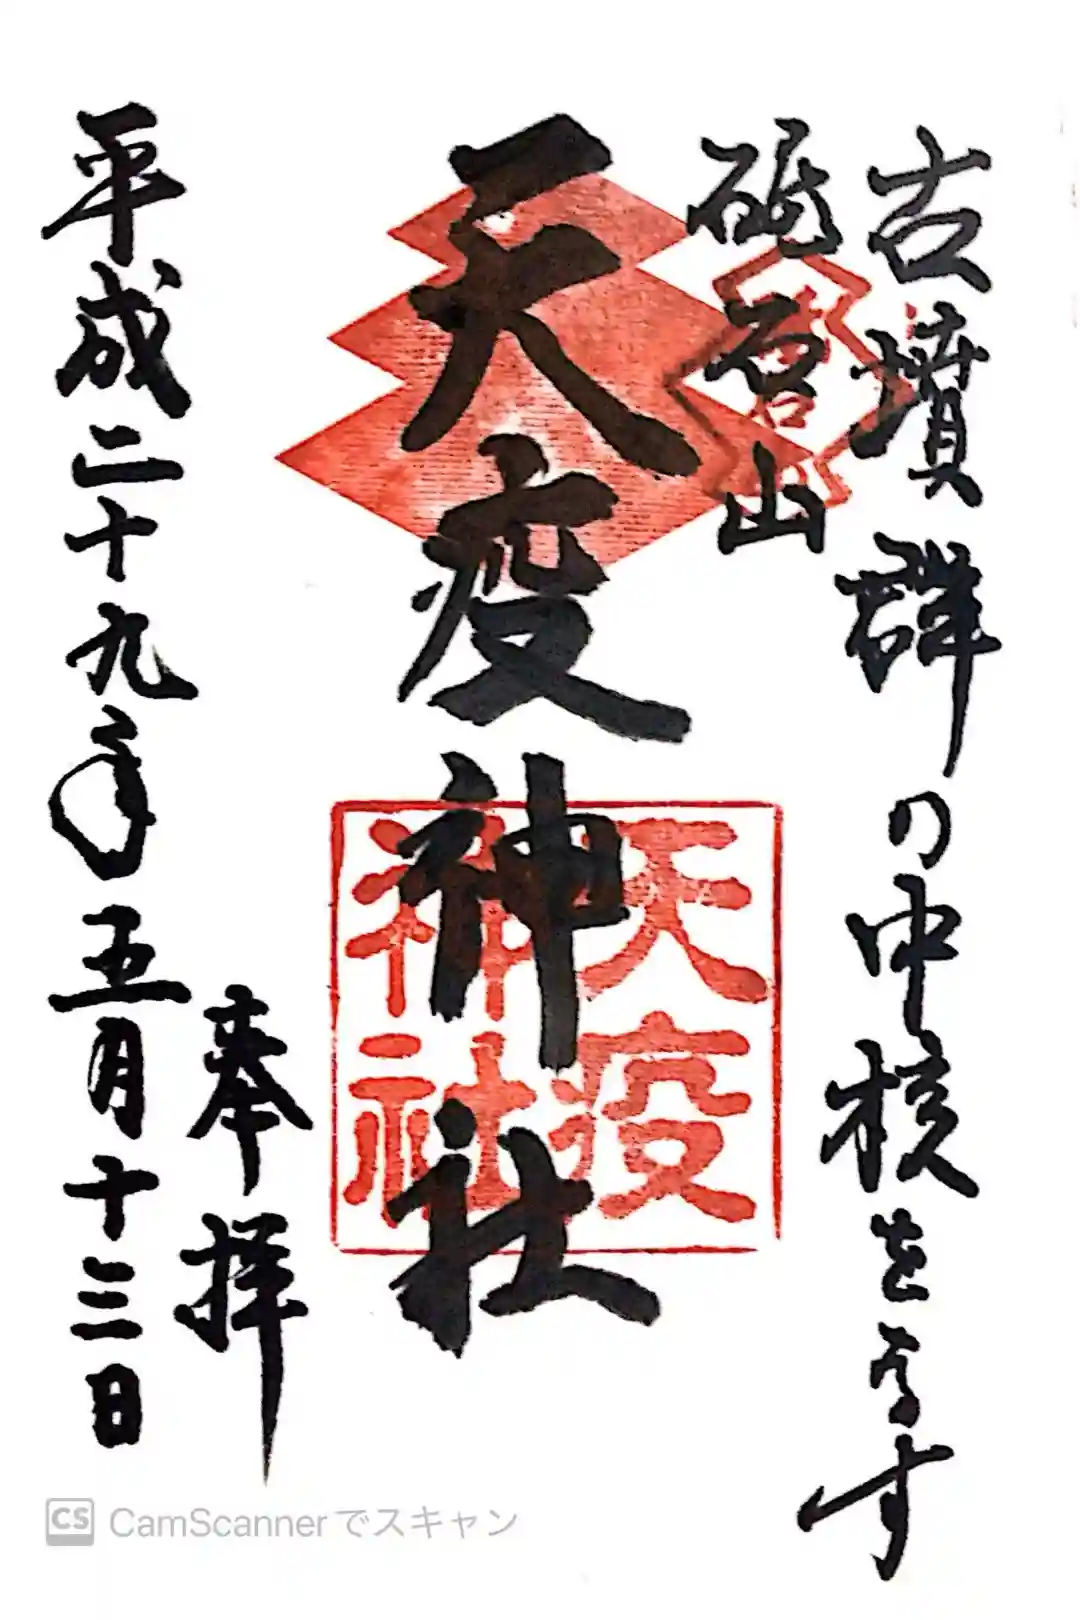 古墳群の中核を為す
砥石山
天疫神社
天疫
神社
奉拝
平成二十九年五月十三日
CS CamScannerでスキャン